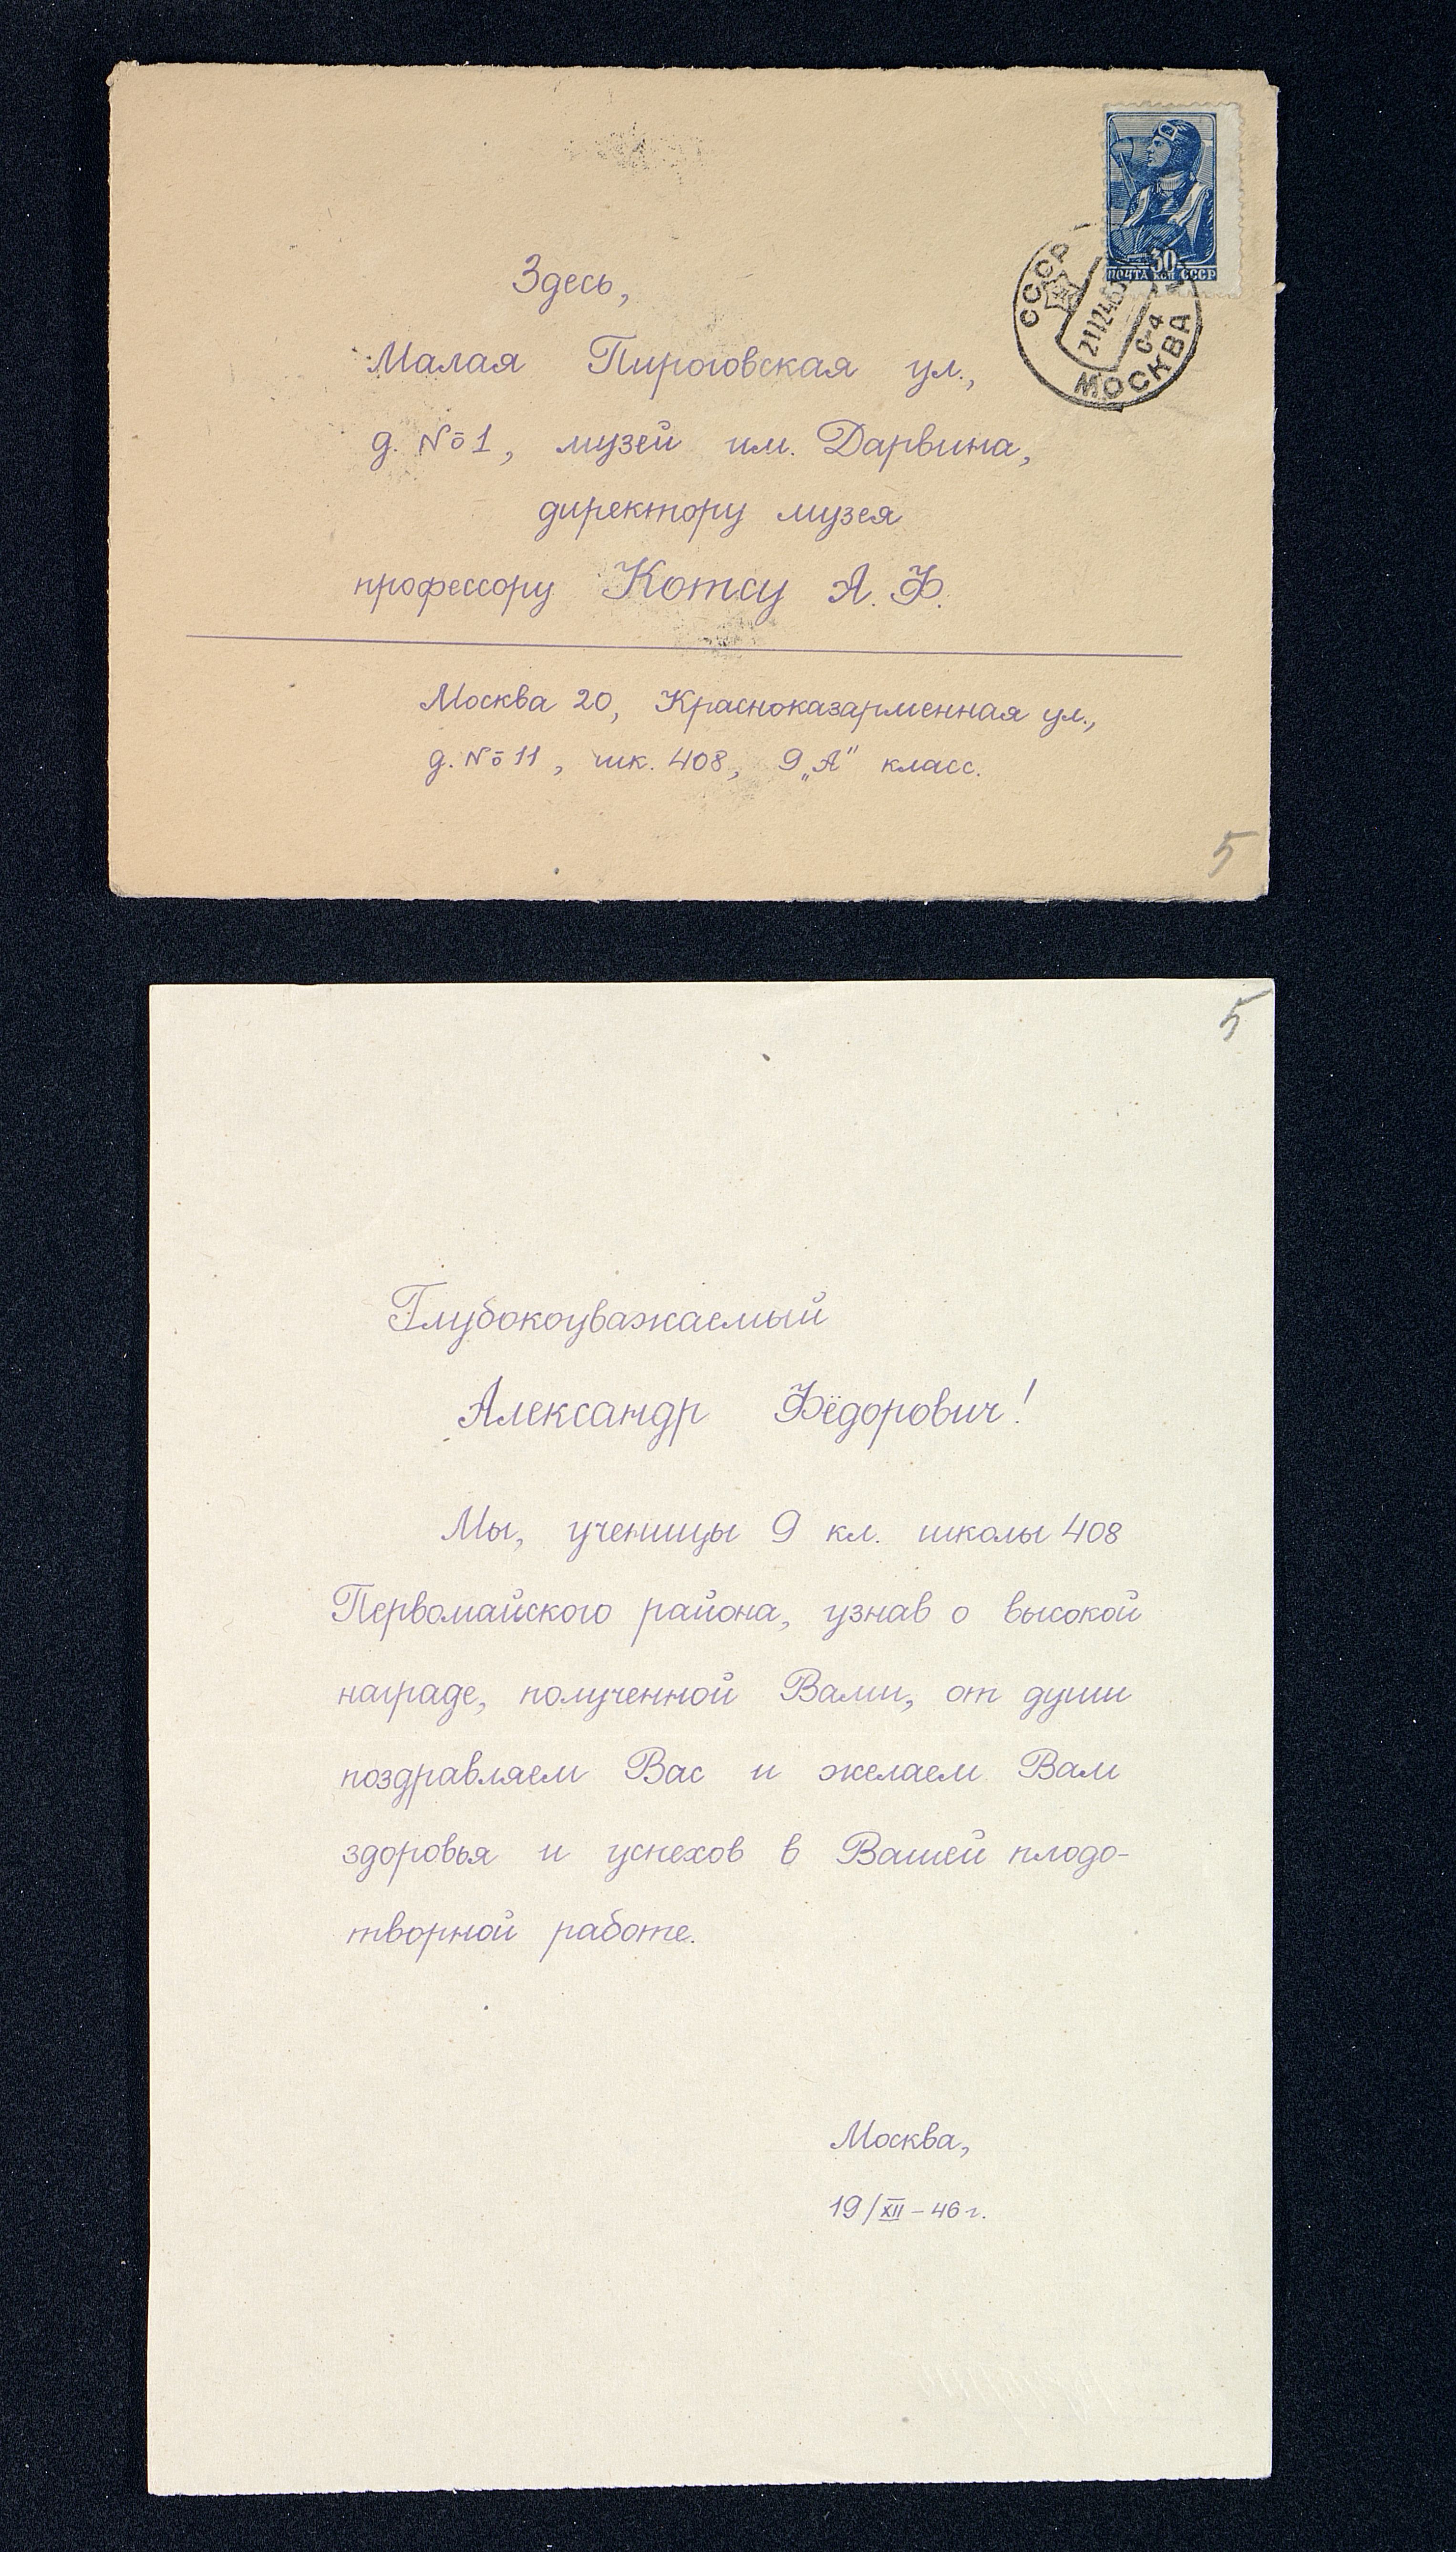 30
ПОЧТА КОП СССР
СССР
МОСКВА
Здесь,
Малая Пироговская ул.,
д. № 1, музей им. Дарвина,
директору музея
профессору Котсу А. Ф.
Москва 20, Красноказарменная ул.,
д. № 11, шк. 408, 9 „А" класс.
5
5
Глубокоуважаемый
Александр Фёдорович!
Мы, ученицы 9 кл. школы 408
Первомайского района, узнав о высокой
награде, полученной Вами, от души
поздравляем Вас и желаем Вам
здоровья и успехов в Вашей плодо-
творной работе.
Москва,
19/XII - 46 г.